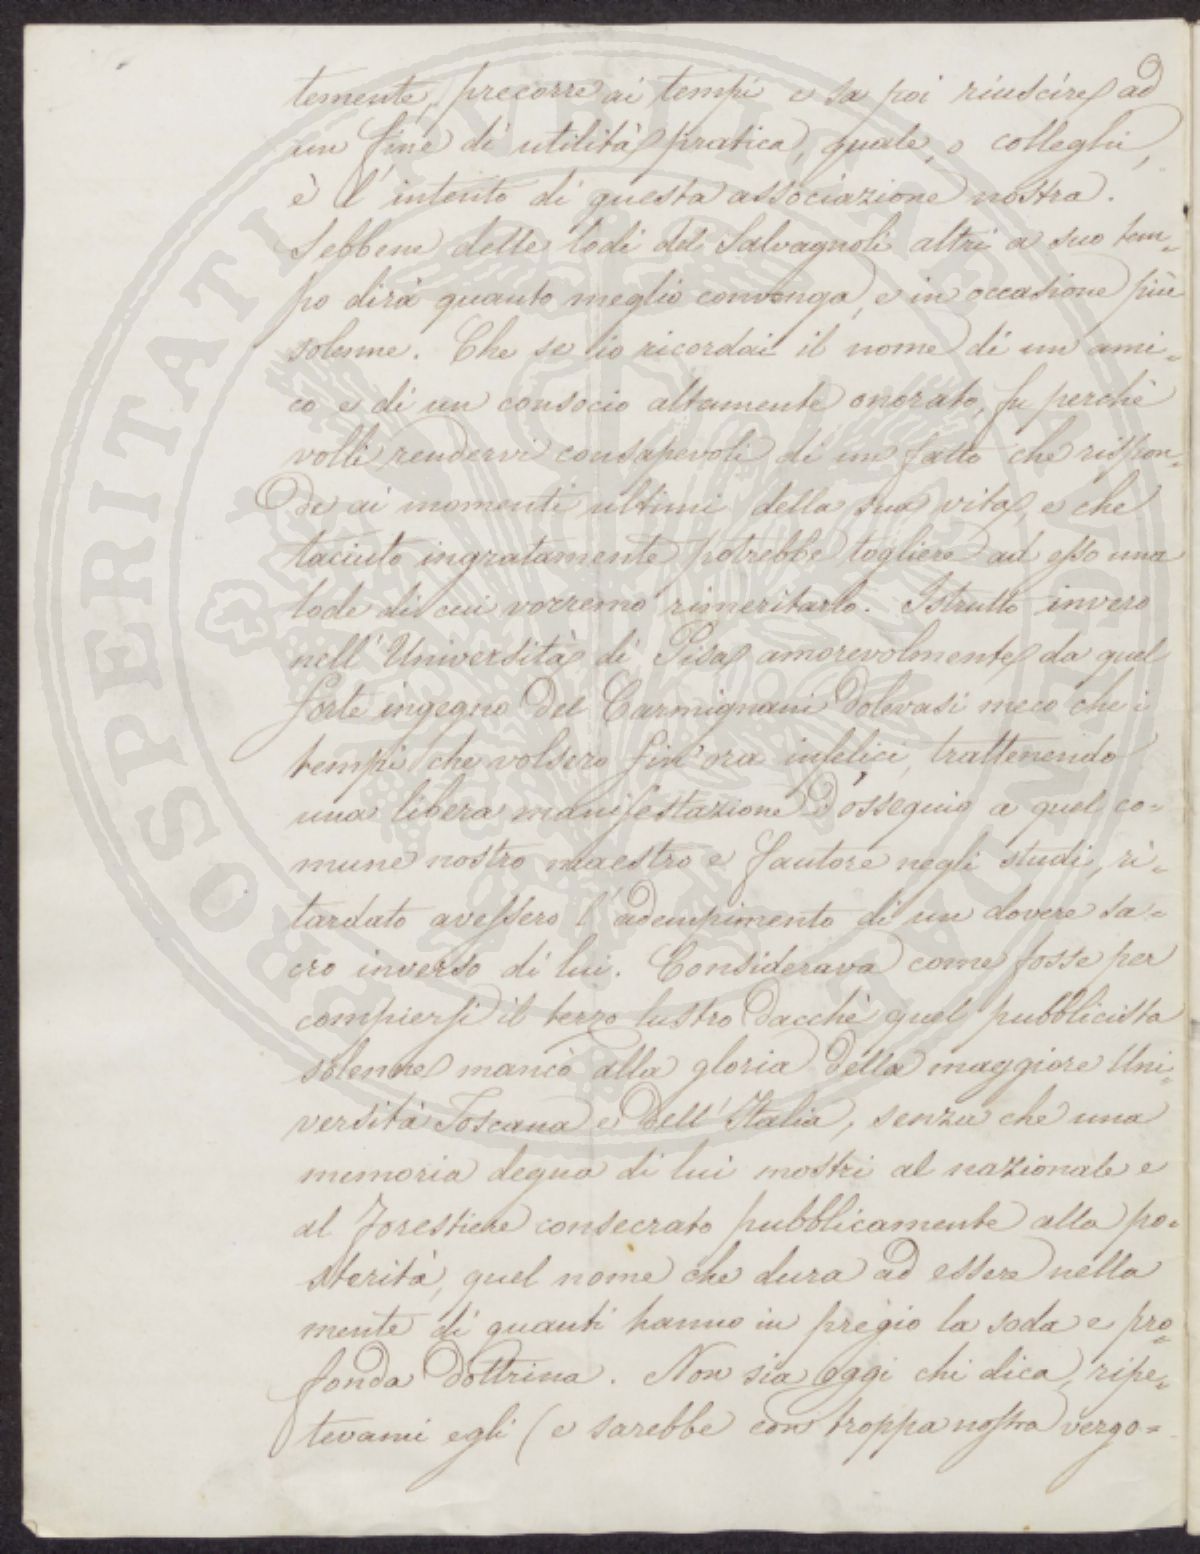 temente, precorre ai tempi e sa poi riuscire ad
un fine di utilità pratica, quale, o colleghi,
è l'intento di questa associazione nostra.
Sebbene delle lodi del Salvagnoli altri a suo tem=
po dirà quanto meglio convenga, e in occasione più
solenne. Che se io ricordai il nome di un ami=
co e di un consocio altamente onorato, fu perchè
volli rendervi consapevoli di un fatto che rispon=
de ai momenti ultimi della sua vita, e che
taciuto ingratamente potrebbe togliere ad esso una
lode di cui vorremo rimeritarlo. Istrutto invero
nell'Università di Pisa amorevolmente da quel
forte ingegno del Carmignani dolevasi meco che i
tempi che volsero fin'ora infelici, trattenendo
una libera manifestazione d'ossequio a quel co=
mune nostro maestro e fautore negli studi, ri=
tardato avessero l'adempimento di un dovere sa=
cro inverso di lui. Considerava come fosse per
compiersi il terzo lustro dacchè quel pubblicista
solenne mancò alla gloria della maggiore Uni=
versità Toscana e dell'Italia, senza che una
memoria degna di lui mostri al nazionale e
al forestiere consecrato pubblicamente alla po=
sterità, quel nome che dura ad essere nella
mente di quanti hanno in pregio la soda e pro=
fonda dottrina. Non sia oggi chi dica, ripe=
tevami egli (e sarebbe con troppa nostra vergo=
PROSPERITATI PUBLICAE AUGENDAE